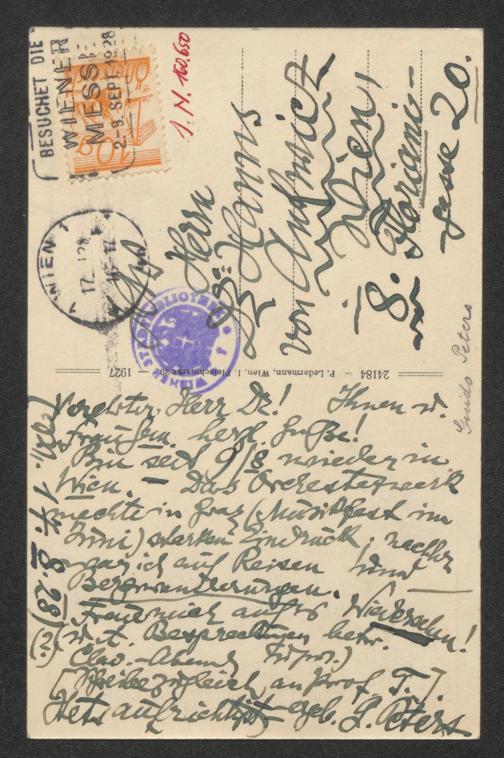 BESUCHET DIE
WIENER
MESSE
2.-9. SEPT. 1928
10 g
J. N. 160.650
WIEN
17.
Herrn
Dr. Hanns
von
Wien,
8. Floriani-
gasse 20.
WIENER STADTBIBLIOTHEK
24184 — P. Ledermann, Wien, I. Fleischmarkt 20 — 1927
Guido Peters
Wien, 17. 8. 28
Verehrter Herr Dr.! Ihnen u.
herzl. Grüße!
Bin seit 9/8 wieder in
Wien. — Das Orchesterwerk
machte in Graz (Musikfest im
Juni) starken Eindruck; nachher
war ich auf Reisen und
Bergwanderungen.
Freue mich aufs Wiedersehen!
(?) u. Besprechungen betr.
Clav.-Abend
[Schreibe zugleich an Prof. T.]
Stets aufrichtigst ergeb. G. Peters